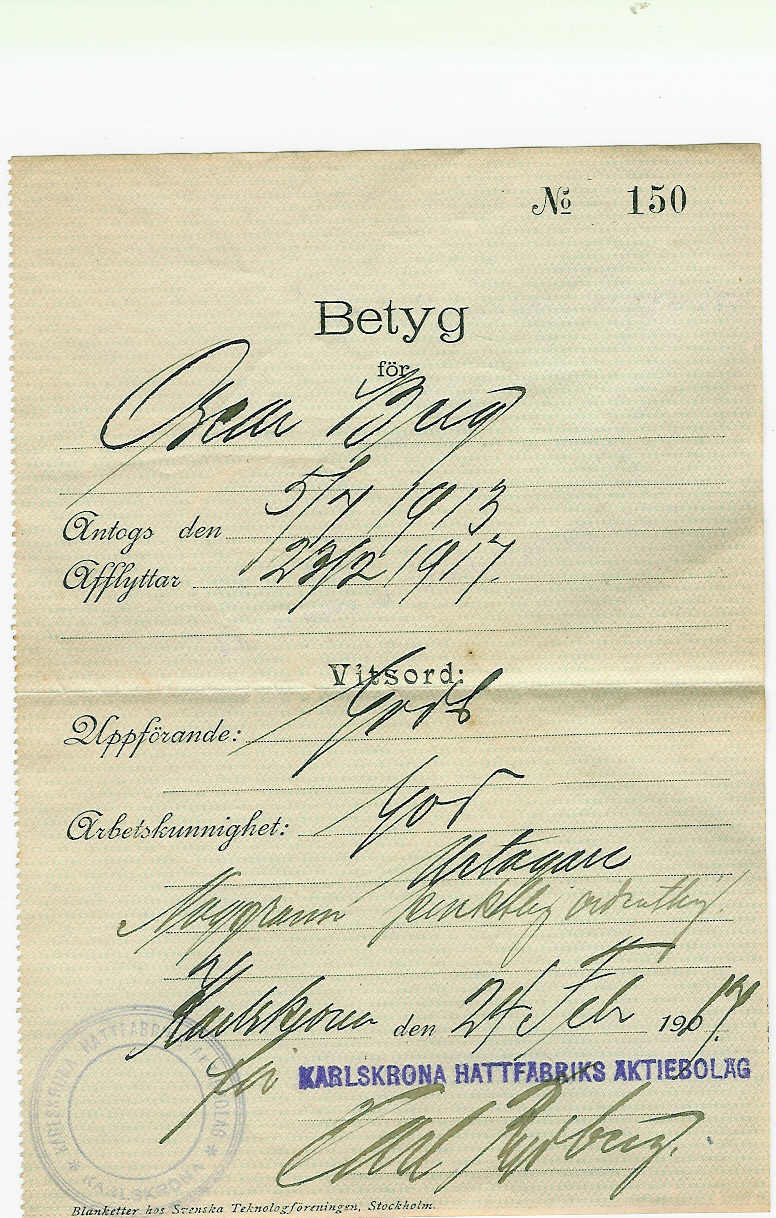 № 150
Betyg
för
Oscar Berg
Antogs den 5/7 1913
Afflyttar 23/2 1917.
Vitsord:
Uppförande: Godt
Arbetskunnighet: God
Noggrann punktlig ordentlig.
Karlskrona den 24 Feb 1917.
för KARLSKRONA HATTFABRIKS AKTIEBOLAG
Carl Rydberg.
KARLSKRONA HATTFABRIKS AKTIEBOLAG
* KARLSKRONA *
Blanketter hos Svenska Teknologföreningen, Stockholm.